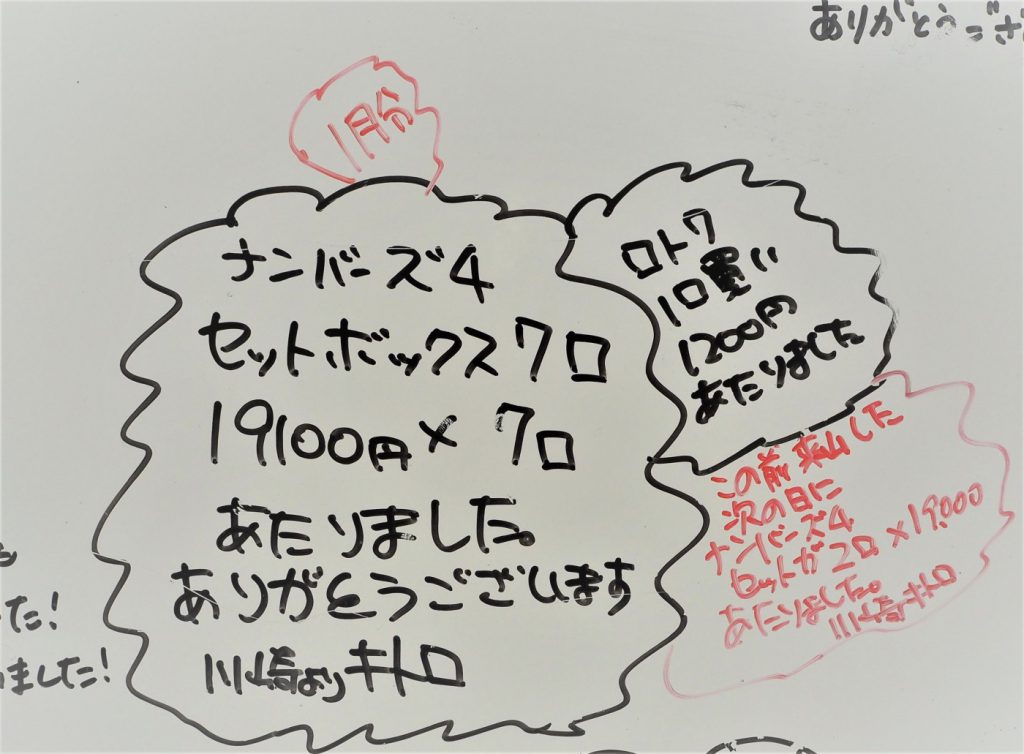 ありがとうござ
1月分
ナンバーズ4
セットボックス7口
19100円×7口
あたりました。
ありがとうございます
川崎よりキトロ
ロト7
1口買い
1200円
あたりました
この前来山した
次の日に
ナンバーズ4
セットが2口×19,000
あたりました。
川崎キトロ
た!
ました!